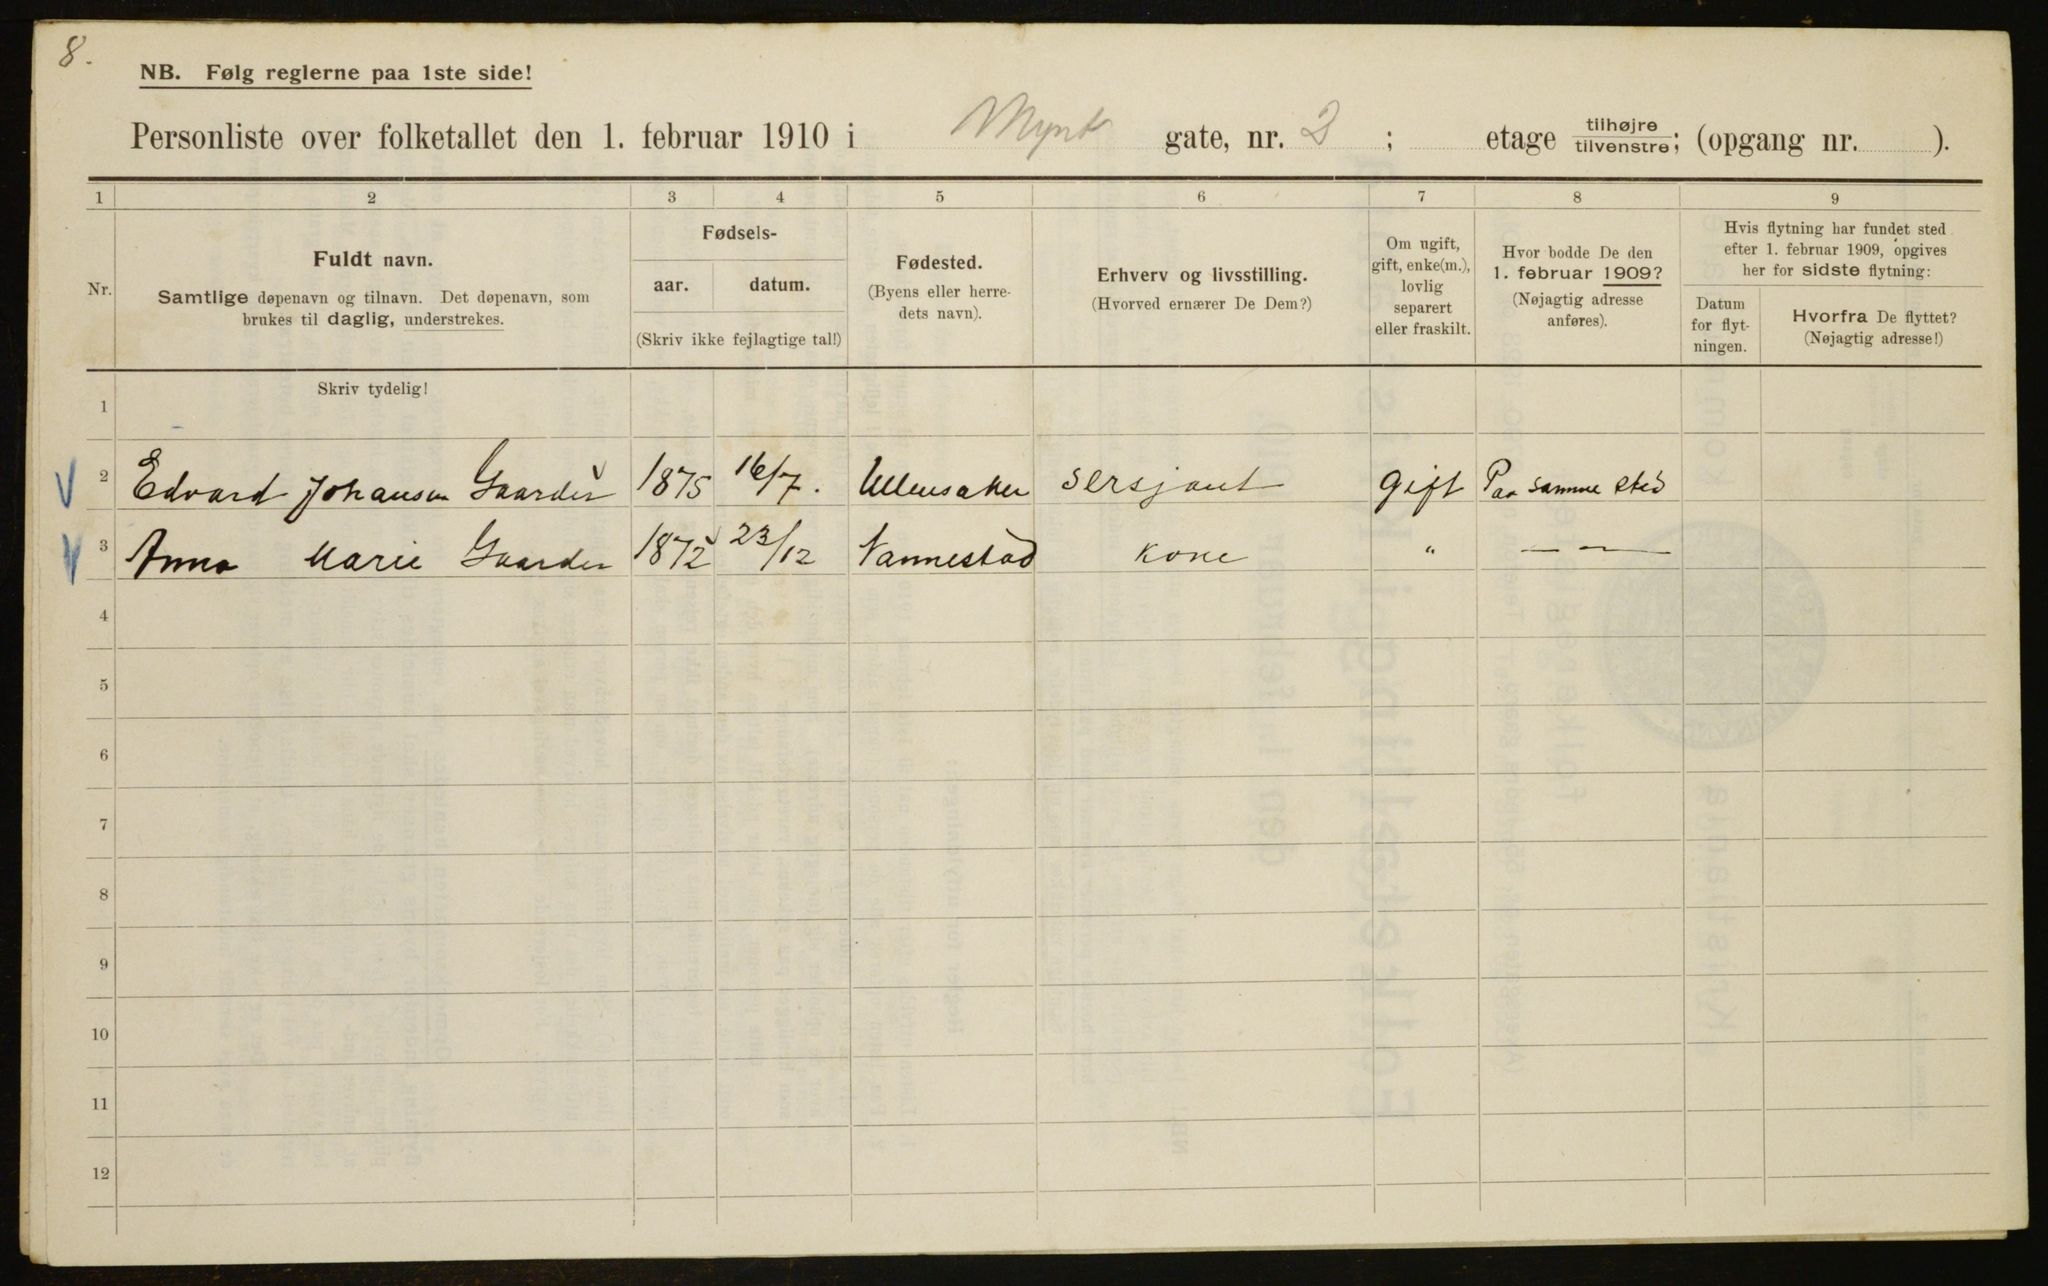 8.
NB. Følg reglerne paa 1ste side!
Personliste over folketallet den 1. februar 1910 i Mynt gate, nr. 2 ; etage tilhøjre tilvenstre; (opgang nr. ).
1 2 3 4 5 6 7 8 9
Nr.
Fuldt navn.
Samtlige døpenavn og tilnavn. Det døpenavn, som
brukes til daglig, understrekes.
Fødsels-
aar. datum.
(Skriv ikke fejlagtige tal!)
Fødested.
(Byens eller herre-
dets navn).
Erhverv og livsstilling.
(Hvorved ernærer De Dem?)
Om ugift,
gift, enke(m.),
lovlig
separert
eller fraskilt.
Hvor bodde De den
1. februar 1909?
(Nøjagtig adresse
anføres).
Hvis flytning har fundet sted
efter 1. februar 1909, opgives
her for sidste flytning:
Datum
for flyt-
ningen.
Hvorfra De flyttet?
(Nøjagtig adresse!)
Skriv tydelig!
1
2 Edvard Johansen Gaarder 1875 16/7. Ullensaker sersjant gift Paa samme sted
3 Anna Marie Gaarder 1872 23/12 Nannestad Kone " — —
4
5
6
7
8
9
10
11
12